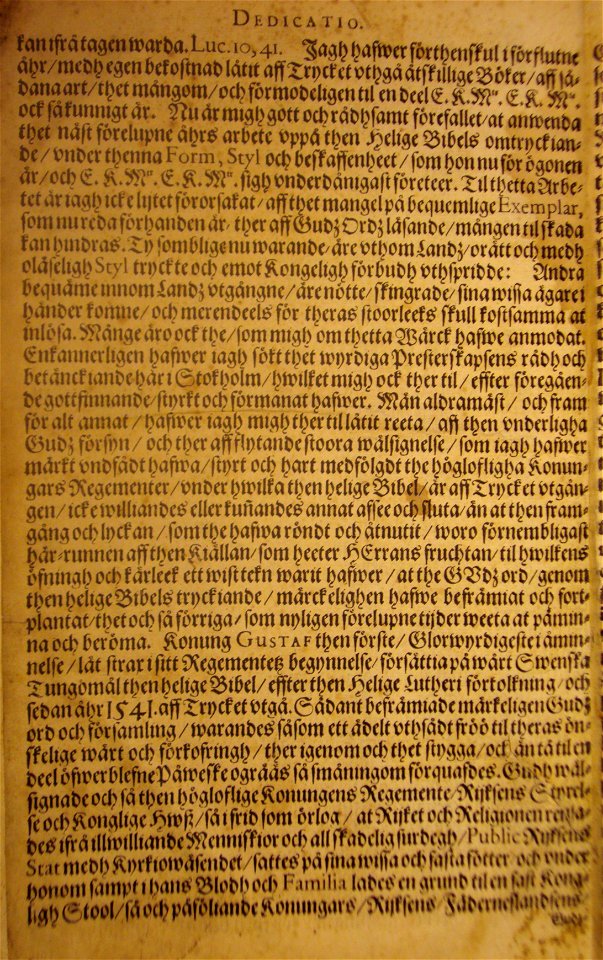 DEDICATIO.
kan ifrå tagen warda. Luc. 10, 41. Jagh hafwer förthenskul i förflutne
åhr/ medh egen bekostnad låtit aff Trycket vthgå åtskillige Böker/ aff så-
dana art/ thet mångom/ och förmodeligen til en deel E. K. M.tt E. K. M.tt
ock så kunnigt är. Nu är migh gott och rådhsamt förefallet/ at anwenda
thet näst förelupne åhrs arbete vppå then Helige Bibels omtryckian-
de/ vnder thenna Form, Styl och beskaffenheet/ som hon nu för ögonen
är/ och E. K. M.tt E. K. M.tt sigh vnderdånigast företeer. Til thetta Arbe-
tet är iagh icke lijtet förorsakat/ aff thet mangel på bequemlige Exemplar,
som nu reda förhanden är/ ther aff Gudz Ordz läsande/ mången til skada
kan hindras. Ty somblige nu warande/ äre vthom Landz/ orätt och medh
oläseligh Styl tryckte och emot Kongeligh förbudh vthspridde: Andra
bequäme innom Landz vtgångne/ äre nötte/ skingrade/ sina wissa ägare i
händer komne/ och merendeels för theras stoorleeks skull kostsamma at
inlösa. Månge äro ock the/ som migh om thetta Wärck hafwe anmodat.
Enkannerligen hafwer iagh sökt thet wyrdiga Presterskapsens rådh och
betänckiande här i Stokholm/ hwilket migh ock ther til/ effter föregåen-
de gottfinnande/ styrkt och förmanat hafwer. Män aldramäst/ och fram
för alt annat/ hafwer iagh migh ther til låtit reeta/ aff then vnderligha
Gudz försyn/ och ther aff flytande stoora wälsignelse/ som iagh hafwer
märkt vndfådt hafwa/ styrt och hart medfölgdt the höglofligha Konun-
gars Regementer/ vnder hwilka then helige Bibel/ är aff Trycket vtgån-
gen/ icke williandes eller kuñandes annat affsee och sluta/ än at then fram-
gång och lyckan/ som the hafwa röndt och åtnutit/ woro förnembligast
här-runnen aff then Kiällan/ som heeter HErrans fruchtan/ til hwilkens
öfningh och kärleek ett wist tekn warit hafwer/ at the GVdz ord/ genom
then helige Bibels tryckiande/ märckelighen hafwe befrämiat och fort-
plantat/ thet och så förriga/ som nyligen förelupne tijder weeta at påmin-
na och beröma. Konung GUSTAF then förste/ Glorwyrdigeste i åmin-
nelse/ lät strax i sitt Regementetz begynnelse/ försättia på wårt Swenska
Tungomål then helige Bibel/ effter then Helige Lutheri förtolkning/ och
sedan åhr 1541. aff Trycket vtgå. Sådant befrämiade märkeligen Gudz
ord och församling/ warandes såsom ett ädelt vthsådt fröö til theras ön-
skelige wärt och förkofringh/ ther igenom och thet stygga/ och än tå til en
deel öfwerblefne Påweske ogrääs så småningom förquafdes. Gudh wäl-
signade och så then höglof­lige Konungens Regemente/ Rijksens Styrel-
se och Konglige Hwß/ så i frid som örlog/ at Rijket och Religionen
des ifrå illwilliande Menniskior och all skadelig surdegh/ Public Rijksens
Stat medh Kyrkiowäsendet/ sattes på sina wissa och fasta fötter och vnder
honom sampt i hans Blodh och Familia lades en grund til en fast Kong-
ligh Stool/ så och påföliande Konungars/ Rijksens/ Fäderneslandsens